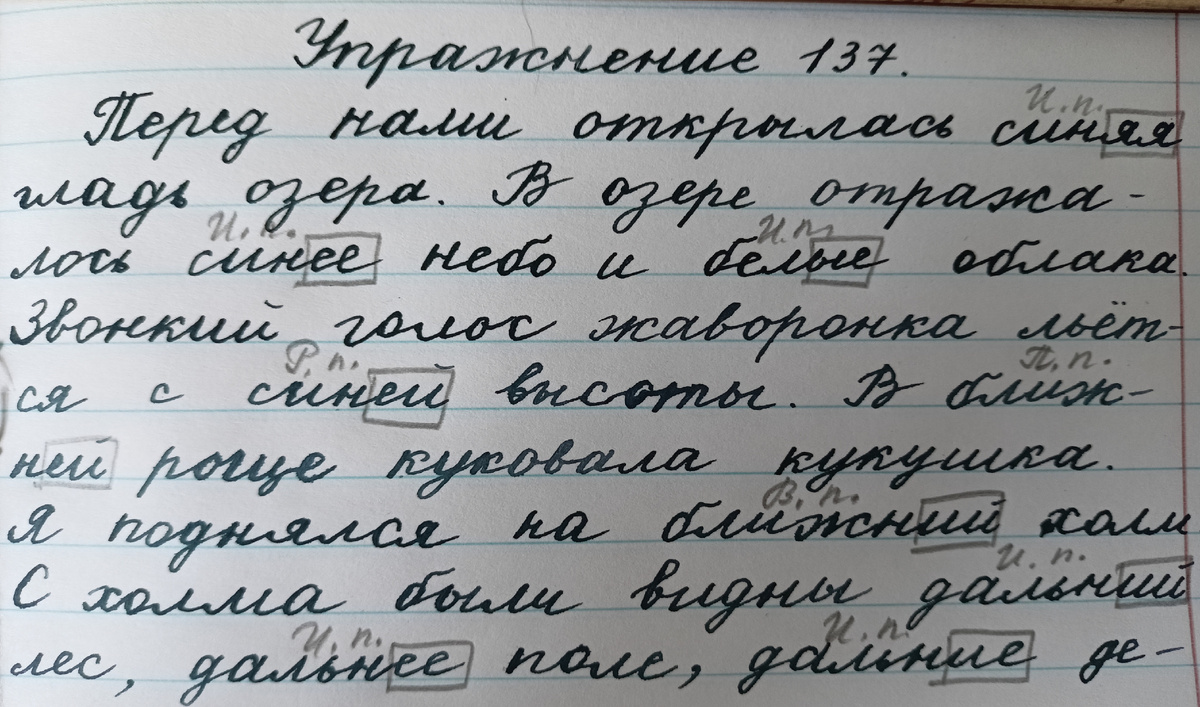 Упражнение 137.
И. п.
Перед нами открылась синяя
гладь озера. В озере отража-
И. п. И. п.
лось синее небо и белые облака.
Звонкий голос жаворонка льёт-
Р. п. П. п.
ся с синей высоты. В ближ-
ней роще куковала кукушка.
В. п.
Я поднялся на ближний холм
И. п.
С холма были видны дальний
И. п. И. п.
лес, дальнее поле, дальние де-